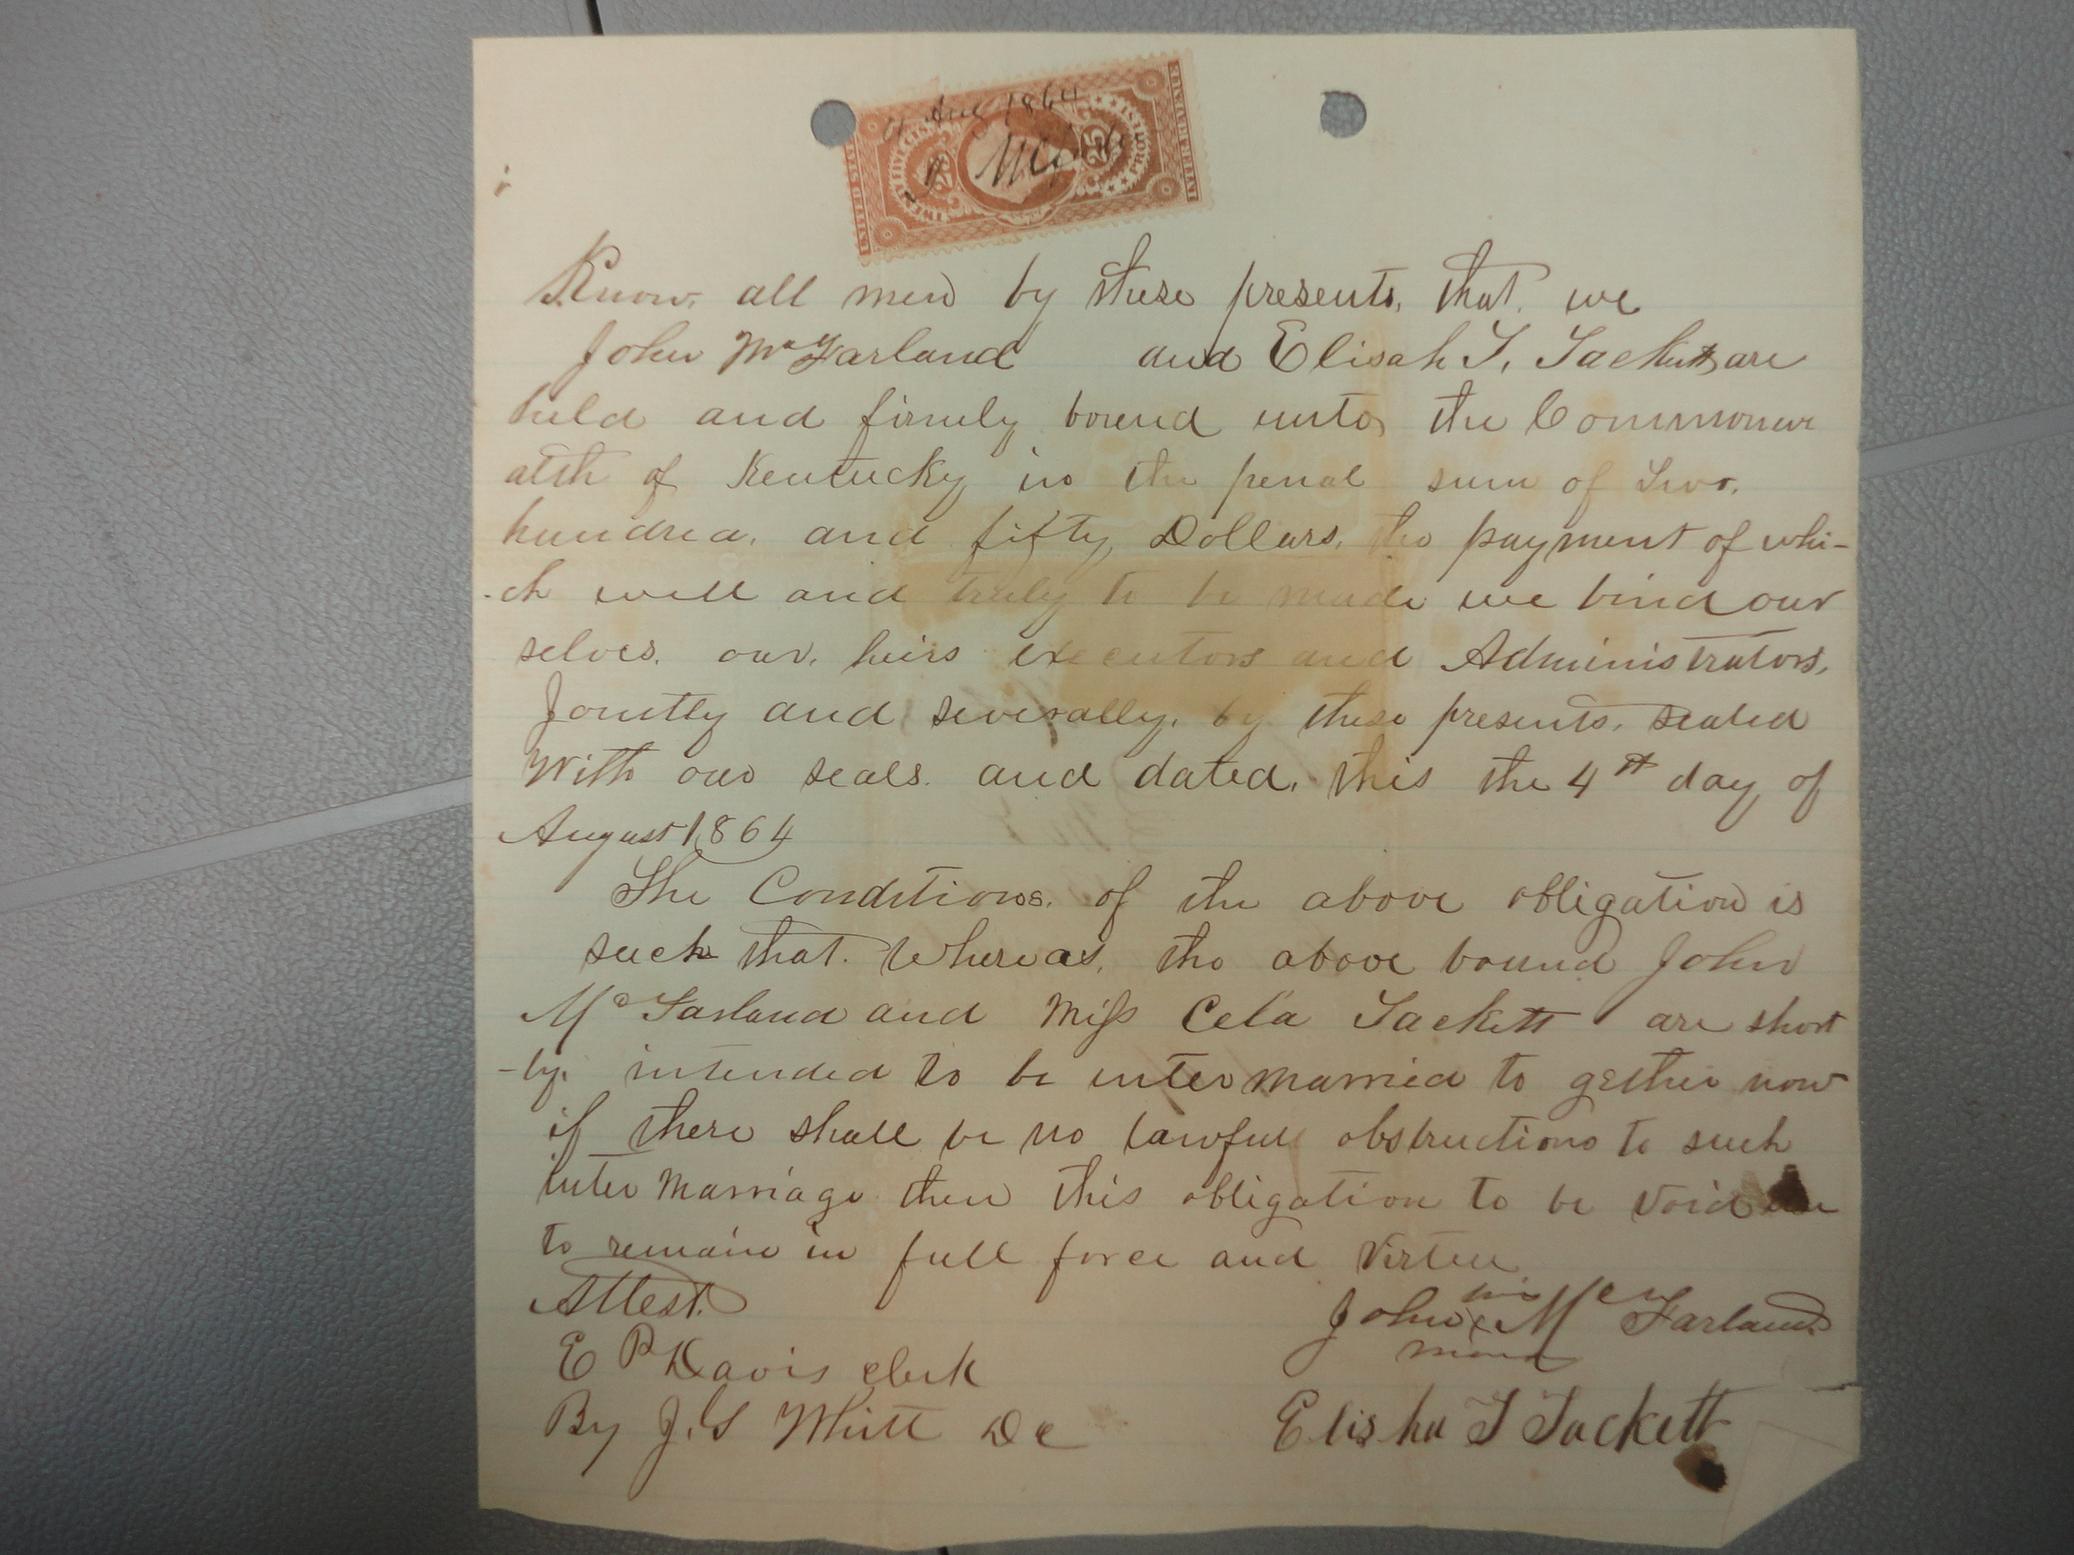 4 Aug 1864
UNITED STATES
25
25
INTER REVENUE
Know, all men by these presents, that. we
John McFarland and Elisah T. Tackett are
held and firmly bound unto the Commonwe
alth of Kentucky in the penal sum of Two.
hundred. and fifty, Dollars. the payment of whi-
-ch well and truly to be made we bind our
selves. our. heirs executors and Administrators.
Jointly and severally. by these presents. sealed
With our seals. and dated. this the 4th day of
August 1864
The Conditions. of the above obligation is
such that. Whereas. the above bound John
McFarland and Miss Cela Tackett are short
-ly. intended to be inter married to gether now
if there shall be no lawfull obstructions to such
inter Marriage then this obligation to be void
to remain in full force and Virtue
Attest.
his
John x McFarland
mark
E P Davis Clerk
By J. S Whitt D C
Elisha T Tackett